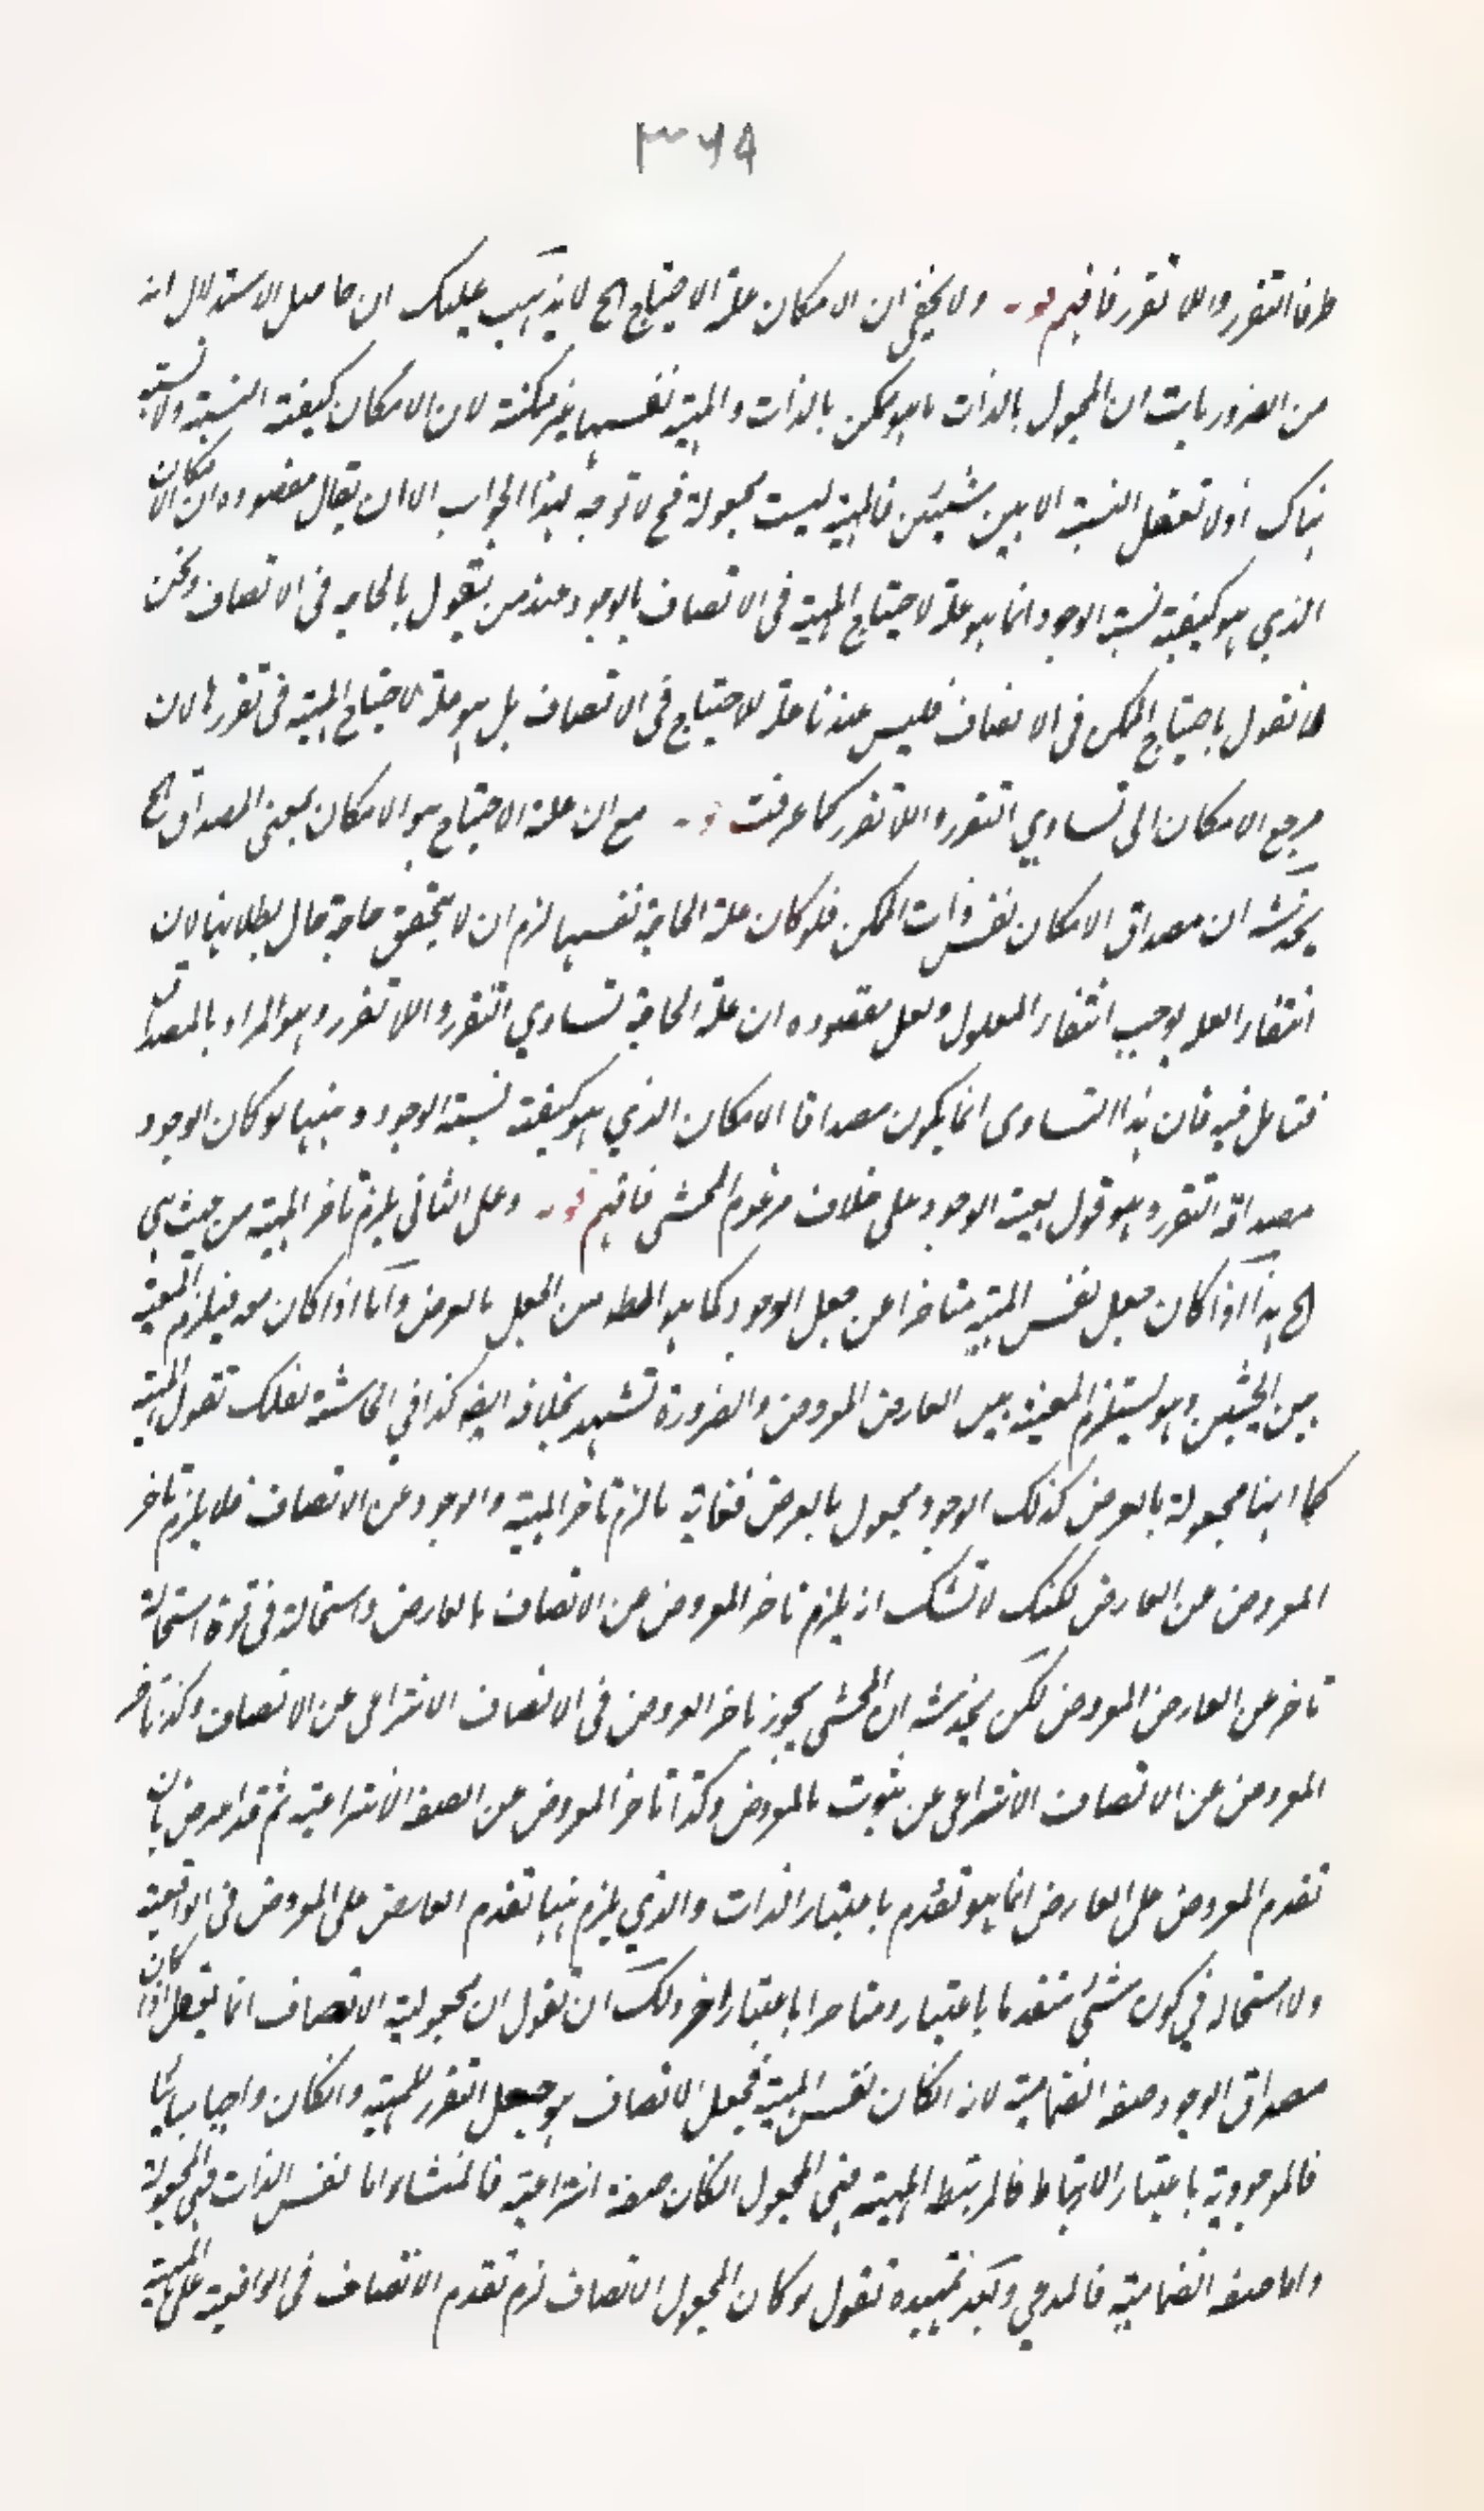 ٣٦٥
طرفا التقرر واللا تقرر فافهم قوله ولا يخفى ان الامكان علة الاحتياج الخ لا يذهب عليك ان حاصل الاستدلال انه
من الضروريات ان المجعول بالذات ما هو ممكن بالذات والمهية نفسها غير ممكنة لان الامكان كيفية النسبة ولا نسبة
هناك اذ لا تعقل النسبة الا بين شيئين فالمهية ليست مجعولة فح لا توجه لهذا الجواب الا ان يقال مقصوده ان الامكان
الذي هو كيفية نسبة الوجود انما هو علة لاحتياج المهية في الاتصاف بالوجود عند من يقول بالحاجة في الاتصاف ونحن
لا نقول باحتياج الممكن في الاتصاف فليس عندنا علة للاحتياج في الاتصاف بل هو علة لاحتياج المهية في تقررها لان
مرجع الامكان الى تساوي التقرر واللا تقرر كما عرفت قوله مع ان علة الاحتياج هو الامكان بمعنى المصداق الخ
يخدشه ان مصداق الامكان نفس ذات الممكن فلو كان علة الحاجة نفسها لزم ان لا يتحقق حاجة حال بطلانها لان
انتفاء العلة يوجب انتفاء المعلول ولعل مقصوده ان علة الحاجة تساوي التقرر واللا تقرر وهو المراد بالمصداق
فتامل فيه فان هذا التساوى انما يكون مصداقا الامكان الذي هو كيفية نسبة الوجود وبينها لو كان الوجود
مصداقه التقرر وهو قول بعينية الوجود على خلاف مزعوم المحشى فافهم قوله وعلى الثاني يلزم تاخر المهية من حيث هي
الخ هذا اذا كان جعل نفس المهية متاخرا عن جعل الوجود كما هو الحظ من الجعل بالعرض واما اذا كان معه فيلزم المعية
بين الحيثين وهو يستلزم المعية بين العارض المعروض والضرورة تشهد بخلافه ايضا كذا في الحاشية لعلك تقول المهية
كما انها مجعولة بالعرض كذلك الوجود مجعول بالعرض فغاية ما لزم تاخر المهية والوجود عن الاتصاف فلا يلزم تاخر
المعروض عن العارض لكنك لا تشك انه يلزم تاخر المعروض عن الاتصاف بالعارض واستحالته في قوة استحالة
تاخر عن العارض المعروض لكن يخدشه ان المحشى يجوز تاخر المعروض في الاتصاف الانتزاعى عن الاتصاف وكذا تاخر
المعروض عن الاتصاف الانتزاعى عن ثبوت بالمعروض وكذا تاخر المعروض عن الصفة الانتزاعية ثم قد اعترض بان
تقدم المعروض على العارض انما هو تقدم باعتبار الذات والذي يلزم ههنا تقدم العارض على المعروض في الواقعية
ولا استحالة في كون شئ متقدما باعتبار ومتاخرا باعتبار اخر ولك ان تقول ان مجعولية الاتصاف انما يعقل اذا كان
مصداق الوجود صفة انضمامية لانه ان كان نفس المهية فجعل الاتصاف هو جعل التقرر للمهية وان كان واجبا مباينا
فالموجودية باعتبار الارتباط فالمرتبط المهية فهي المجعول ان كان صفة انتزاعية فالمنشاء اما نفس الذات فهي المجعولة
واما صفة انضمامية فالمدعى وبعد تمهيده نقول لو كان المجعول الاتصاف لزم تقدم الاتصاف في الواقعية على المهية